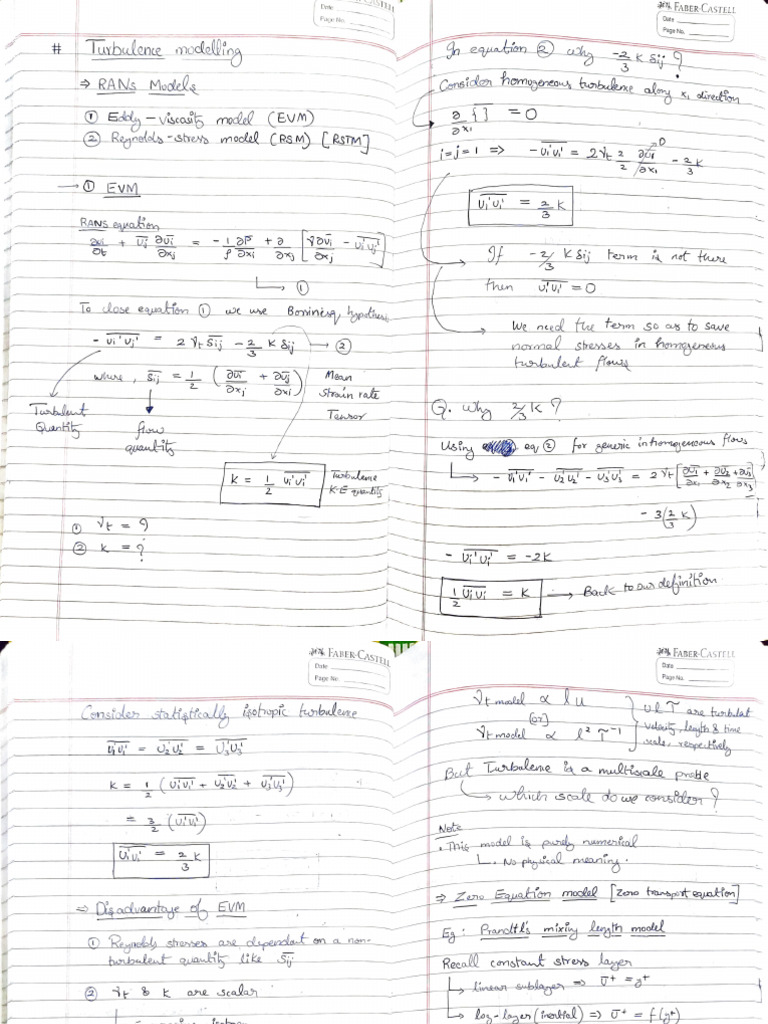 FABER-CASTELL
Date
Page No.
# Turbulence modelling
⇒ RANs Models
① Eddy-viscosity model (EVM)
② Reynolds-stress model (RSM) [RSTM]
→ ① EVM
RANS equation
∂ūi/∂t + ūj ∂ūi/∂xj = -1/ρ ∂p̄/∂xi + ∂/∂xj [ν ∂ūi/∂xj - \overline{ui'uj'}]
↳ ①
To close equation ① we use Bousinesq hypothesis
- \overline{ui'uj'} = 2 νt S̄ij - 2/3 k δij → ②
where, S̄ij = 1/2 (∂ūi/∂xj + ∂ūj/∂xi) Mean
strain rate
Tensor
Turbulent
Quantity
flow
quantity
k = 1/2 \overline{ui'ui'} Turbulence
K.E quantity
① νt = ?
② k = ?
FABER-CASTELL
Date
Page No.
In equation ② why -2/3 k δij ?
Consider homogeneous turbulence along x1 direction
∂/∂x1 {} = 0
i=j=1 => - \overline{u1'u1'} = 2 νt 2/2 ∂ū1/∂x1 - 2/3 k
0
\overline{u1'u1'} = 2/3 k
If -2/3 k δij term is not there
then \overline{u1'u1'} = 0
We need the term so as to save
normal stresses in homogeneous
turbulent flows
Q. Why 2/3 k ?
Using eq ② for generic inhomogeneous flows
- \overline{u1'u1'} - \overline{u2'u2'} - \overline{u3'u3'} = 2 νt [∂ū1/∂x1 + ∂ū2/∂x2 + ∂ū3/∂x3]
- 3(2/3 k)
- \overline{ui'ui'} = -2k
1/2 \overline{ui'ui'} = k → Back to our definition
FABER-CASTELL
Date
Page No.
Consider statistically isotropic turbulence
\overline{u1'u1'} = \overline{u2'u2'} = \overline{u3'u3'}
k = 1/2 (\overline{u1'u1'} + \overline{u2'u2'} + \overline{u3'u3'})
= 3/2 (\overline{u1'u1'})
\overline{u1'u1'} = 2/3 k
⇒ Disadvantage of EVM
① Reynolds stresses are dependant on a non-
turbulent quantity like S̄ij
② νt & k are scalar
FABER-CASTELL
Date
Page No.
νt model ∝ l u
[or]
νt model ∝ l² τ⁻¹
u l τ are turbulat
velocity, length & time
scale, respectively
But Turbulence is a multiscale proble
↳ which scale do we consider ?
Note
• This model is purely numerical
↳ No physical meaning.
⇒ Zero Equation model [zero transport equation]
Eg: Prandtl's mixing length model
Recall constant stress layer
↳ linear sublayer ⇒ ū⁺ = y⁺
↳ log-layer (inertial) ⇒ ū⁺ = f(y⁺)